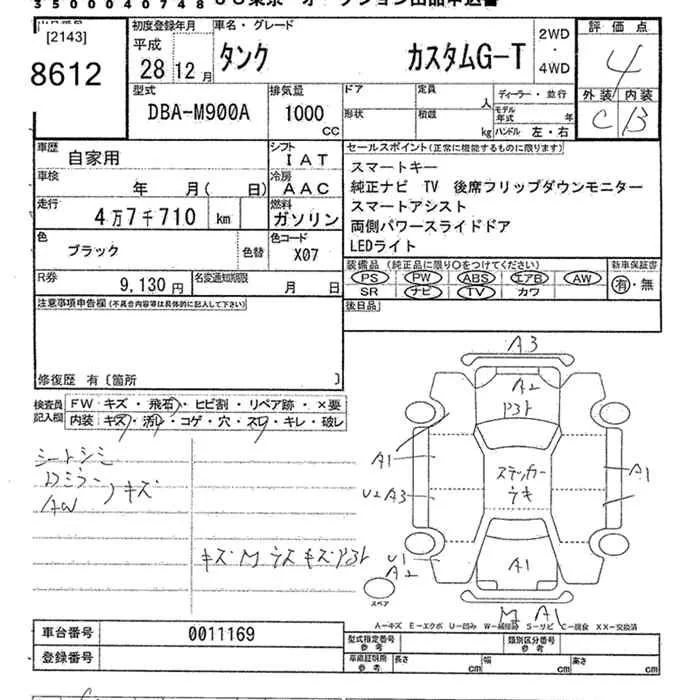 3500040748
[2143]
8612
初度登録年月
平成
28 12 月
車名・グレード
タンク カスタムG-T
2WD
・
4WD
評価点
4
外装 内装
C B
型式
DBA-M900A
排気量
1000
CC
ドア
形状
定員
人
積載
kg
ディーラー・並行
モデル
年式 年
ハンドル 左・右
車歴
自家用
シフト
IAT
車検
年 月( 日)
冷房
AAC
走行
4万7千710 km
燃料
ガソリン
色
ブラック
色替
色コード
X07
R券
9,130 円
名変通知期限
月 日
セールスポイント(正常に機能するものに限ります)
スマートキー
純正ナビ TV 後席フリップダウンモニター
スマートアシスト
両側パワースライドドア
LEDライト
装備品(純正品に限り○をつけてください)
PS PW ABS エアB AW
SR ナビ TV カワ
新車保証書
有・無
注意事項申告欄(不具合内容等は具体的に記入して下さい)
修復歴 有〔箇所 〕
後日品
検査員
記入欄
FW キズ・飛石・ヒビ割・リペア跡・×要
内装 キズ・汚レ・コゲ・穴・スレ・キレ・破レ
シートシミ
Dミラー
AW
キズ
キズ M ラス キズ
A3
A2
A1
U2 A3
ステッカー
ウキ
A1
U1
A2
A1
M A1
スペア
A-キズ E-エクボ U-凹み W-補修跡 S-サビ C-腐食 XX-交換済
車台番号
0011169
登録番号
型式指定番号
参考
類別区分番号
参考
車庫証明用
参考
長さ cm
幅 cm
高さ cm